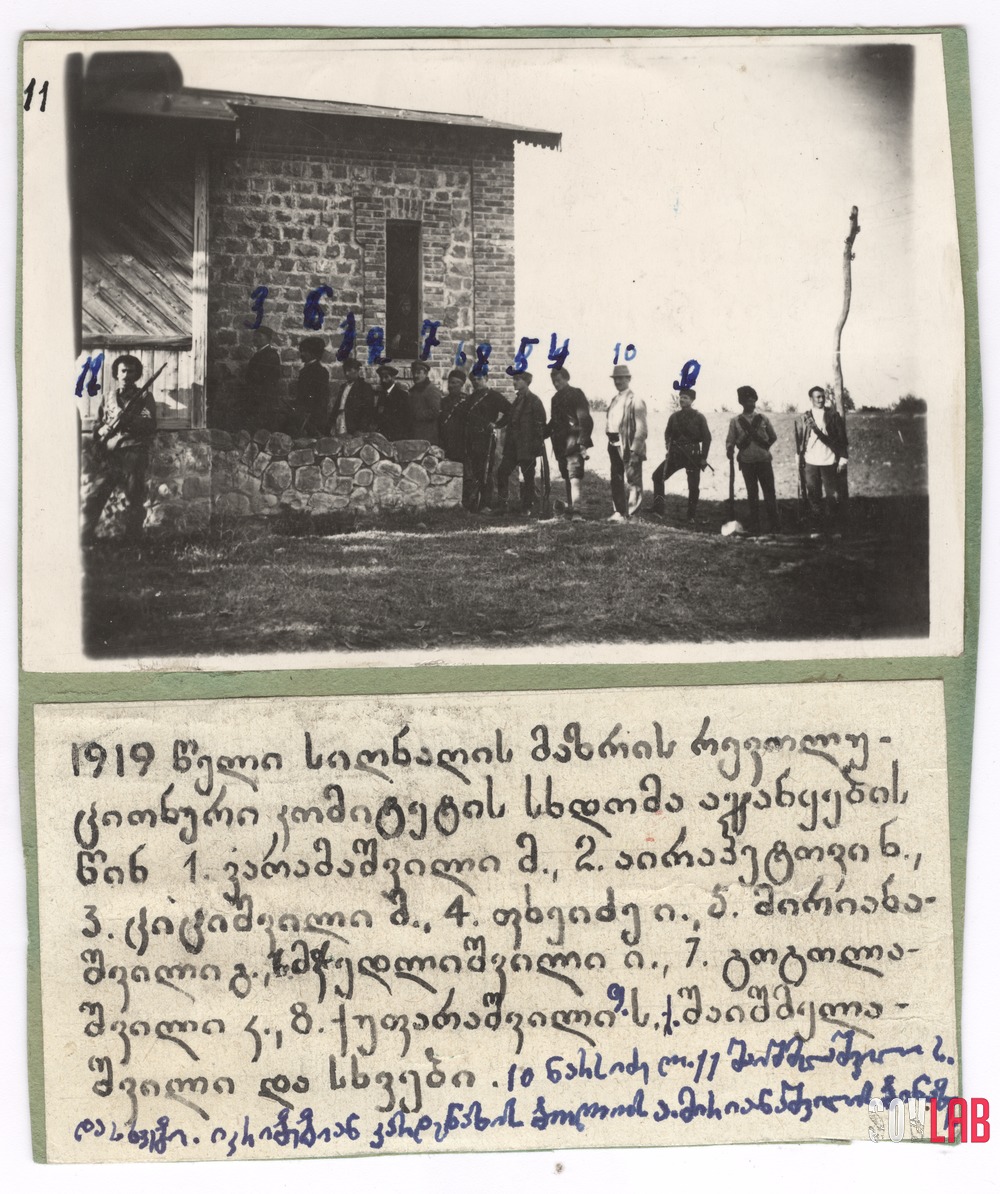 11
3 6 1 2 7 6 8 5 4 10 9
11
1919 წელი სიღნაღის მაზრის რევოლუ-
ციონური კომიტეტის სხდომა აჯანყების
წინ 1. ვარამაშვილი მ., 2. აირაპეტოვი ნ.,
3. ციციშვილი შ., 4. ფხეიძე ი., 5. მირიანა-
შვილი გ., 6. მჭედლიშვილი ი., 7. გოგოლა-
შვილი კ., 8. ჯუფარაშვილი ს., 9. შაიშმელა-
შვილი და სხვები. 10 ნარსიძე ლ. 11
იკრიბებიან კარდენახის ბოლოს
SOVLAB